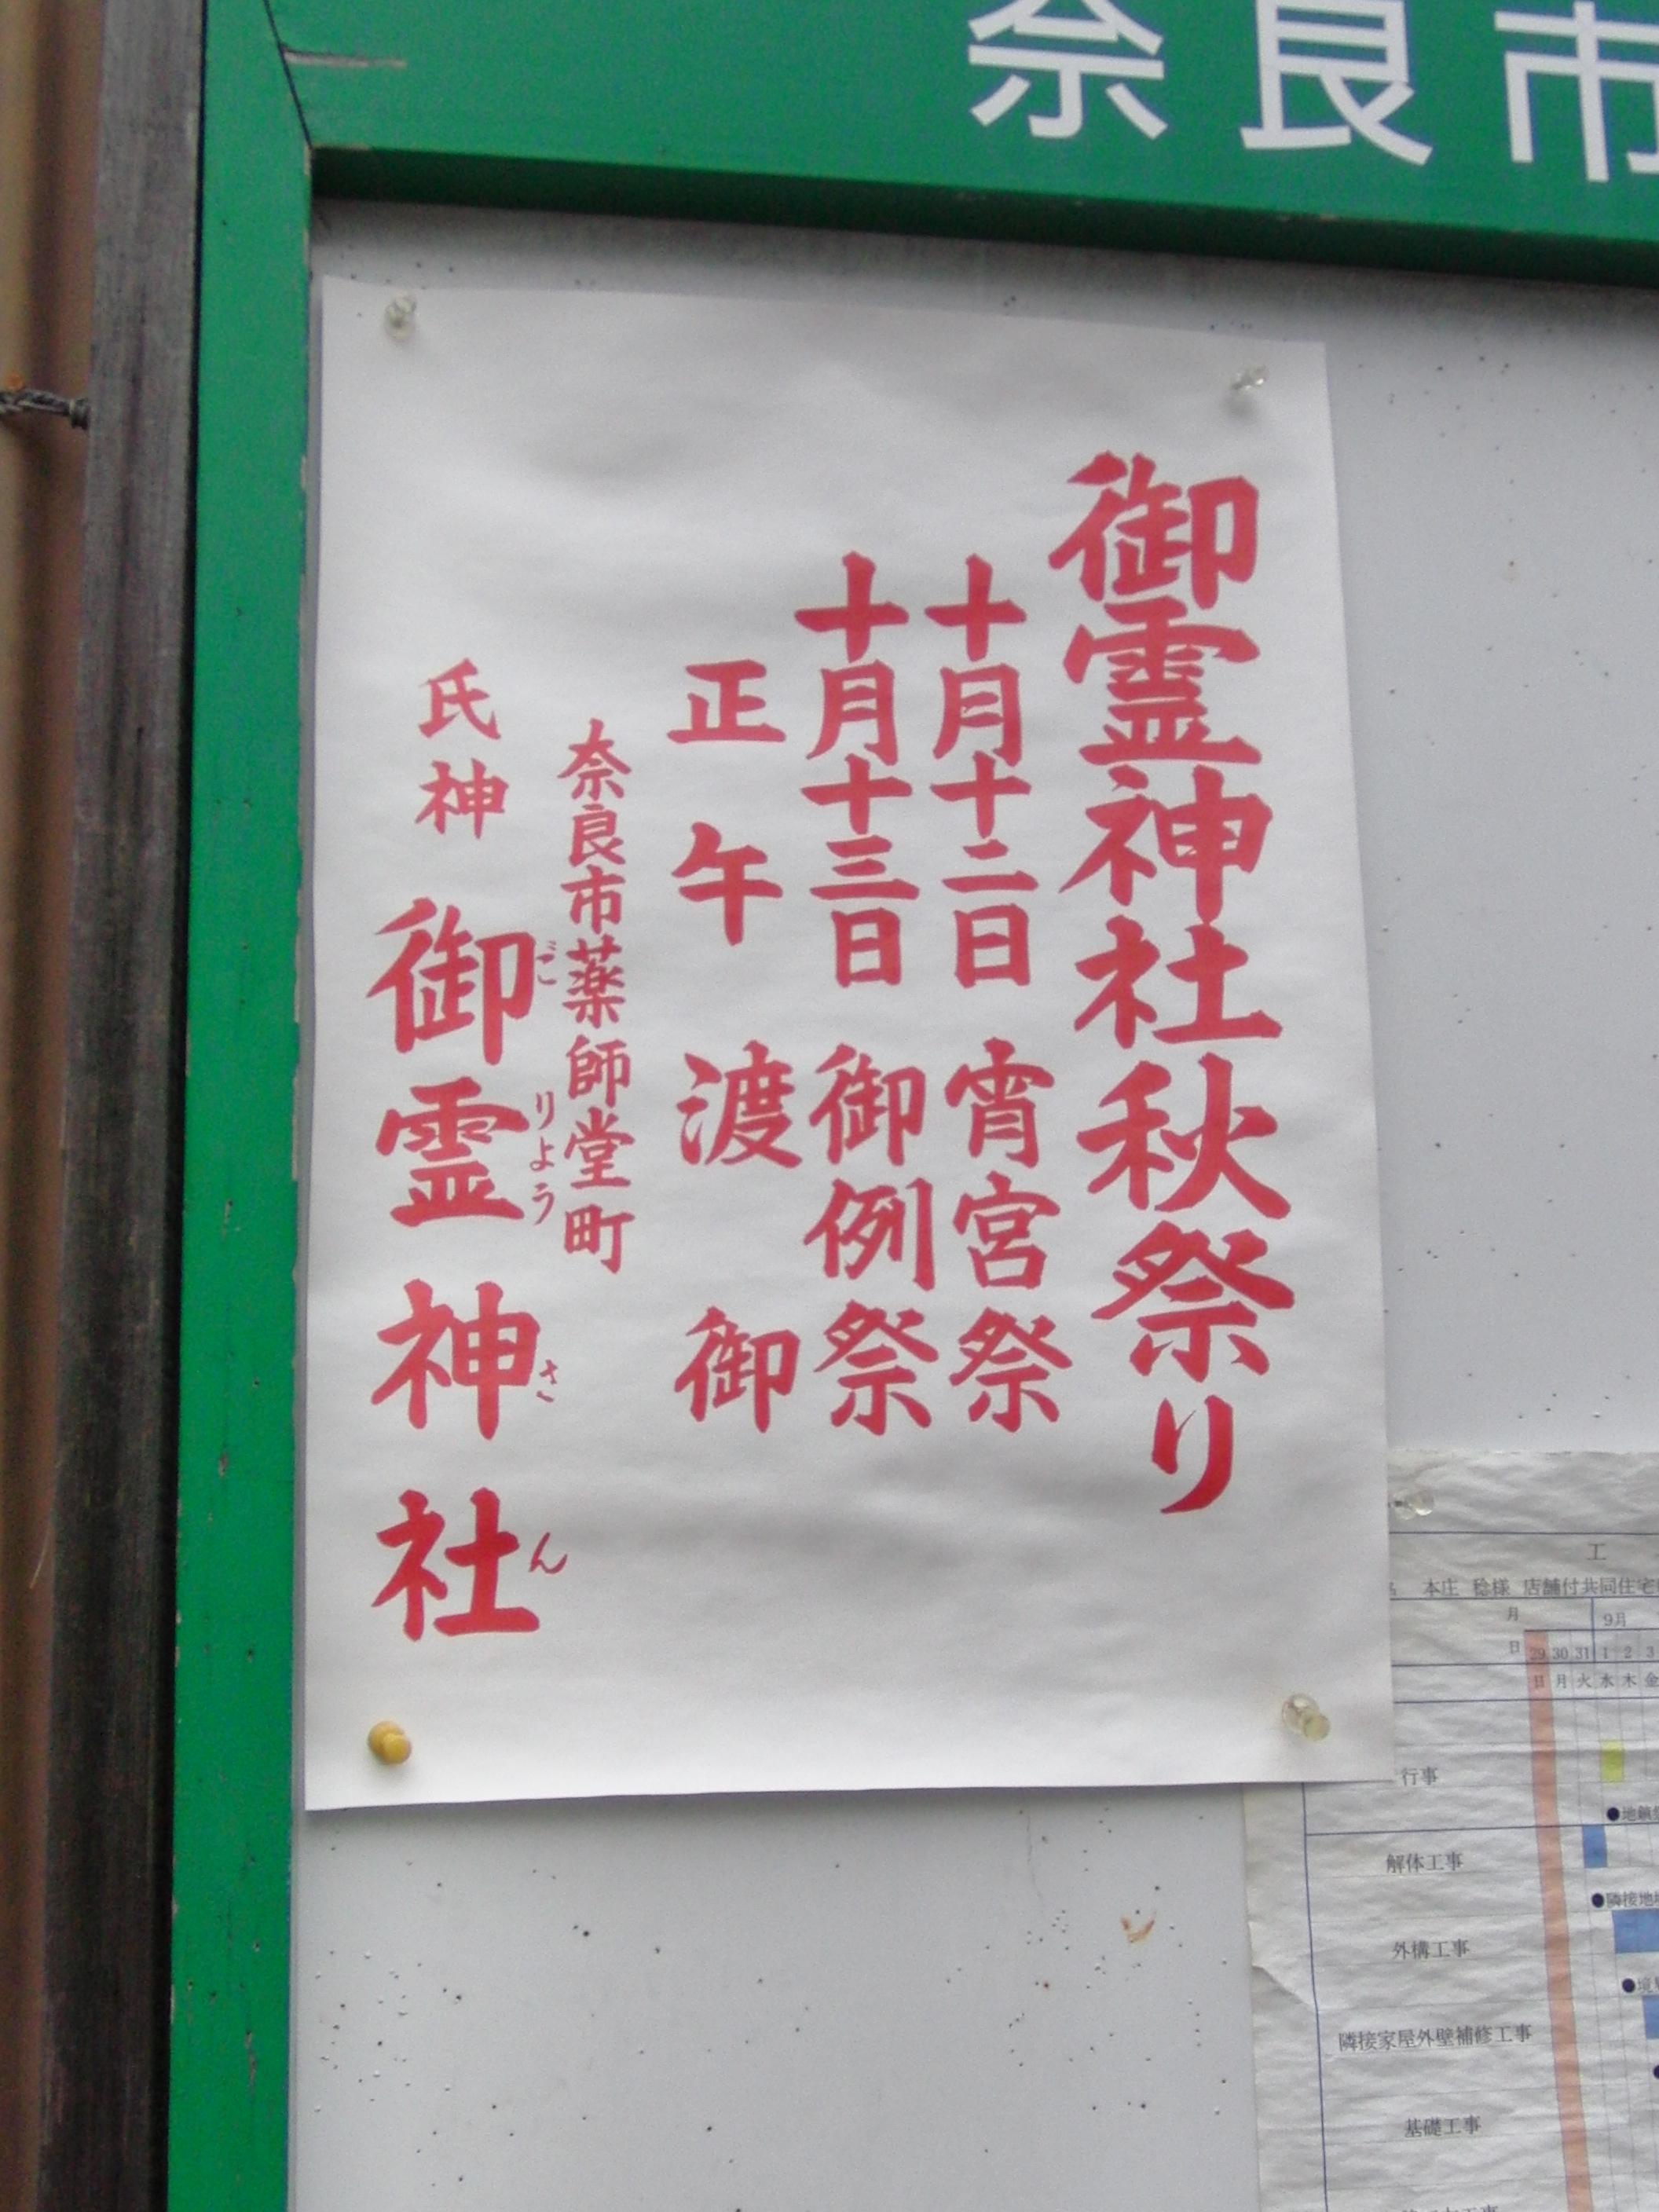 奈良市
御霊神社秋祭り
十月十二日 宵宮祭
十月十三日 御例祭
正午 渡御
奈良市薬師堂町
氏神 御霊神社
ごりょうさん
工
本庄 稔様 店舗付共同住宅
月 9月
日 29 30 31 1 2 3
日 月 火 水 木 金
行事
●地鎮祭
解体工事
●隣接地
外構工事
隣接家屋外壁補修工事
基礎工事